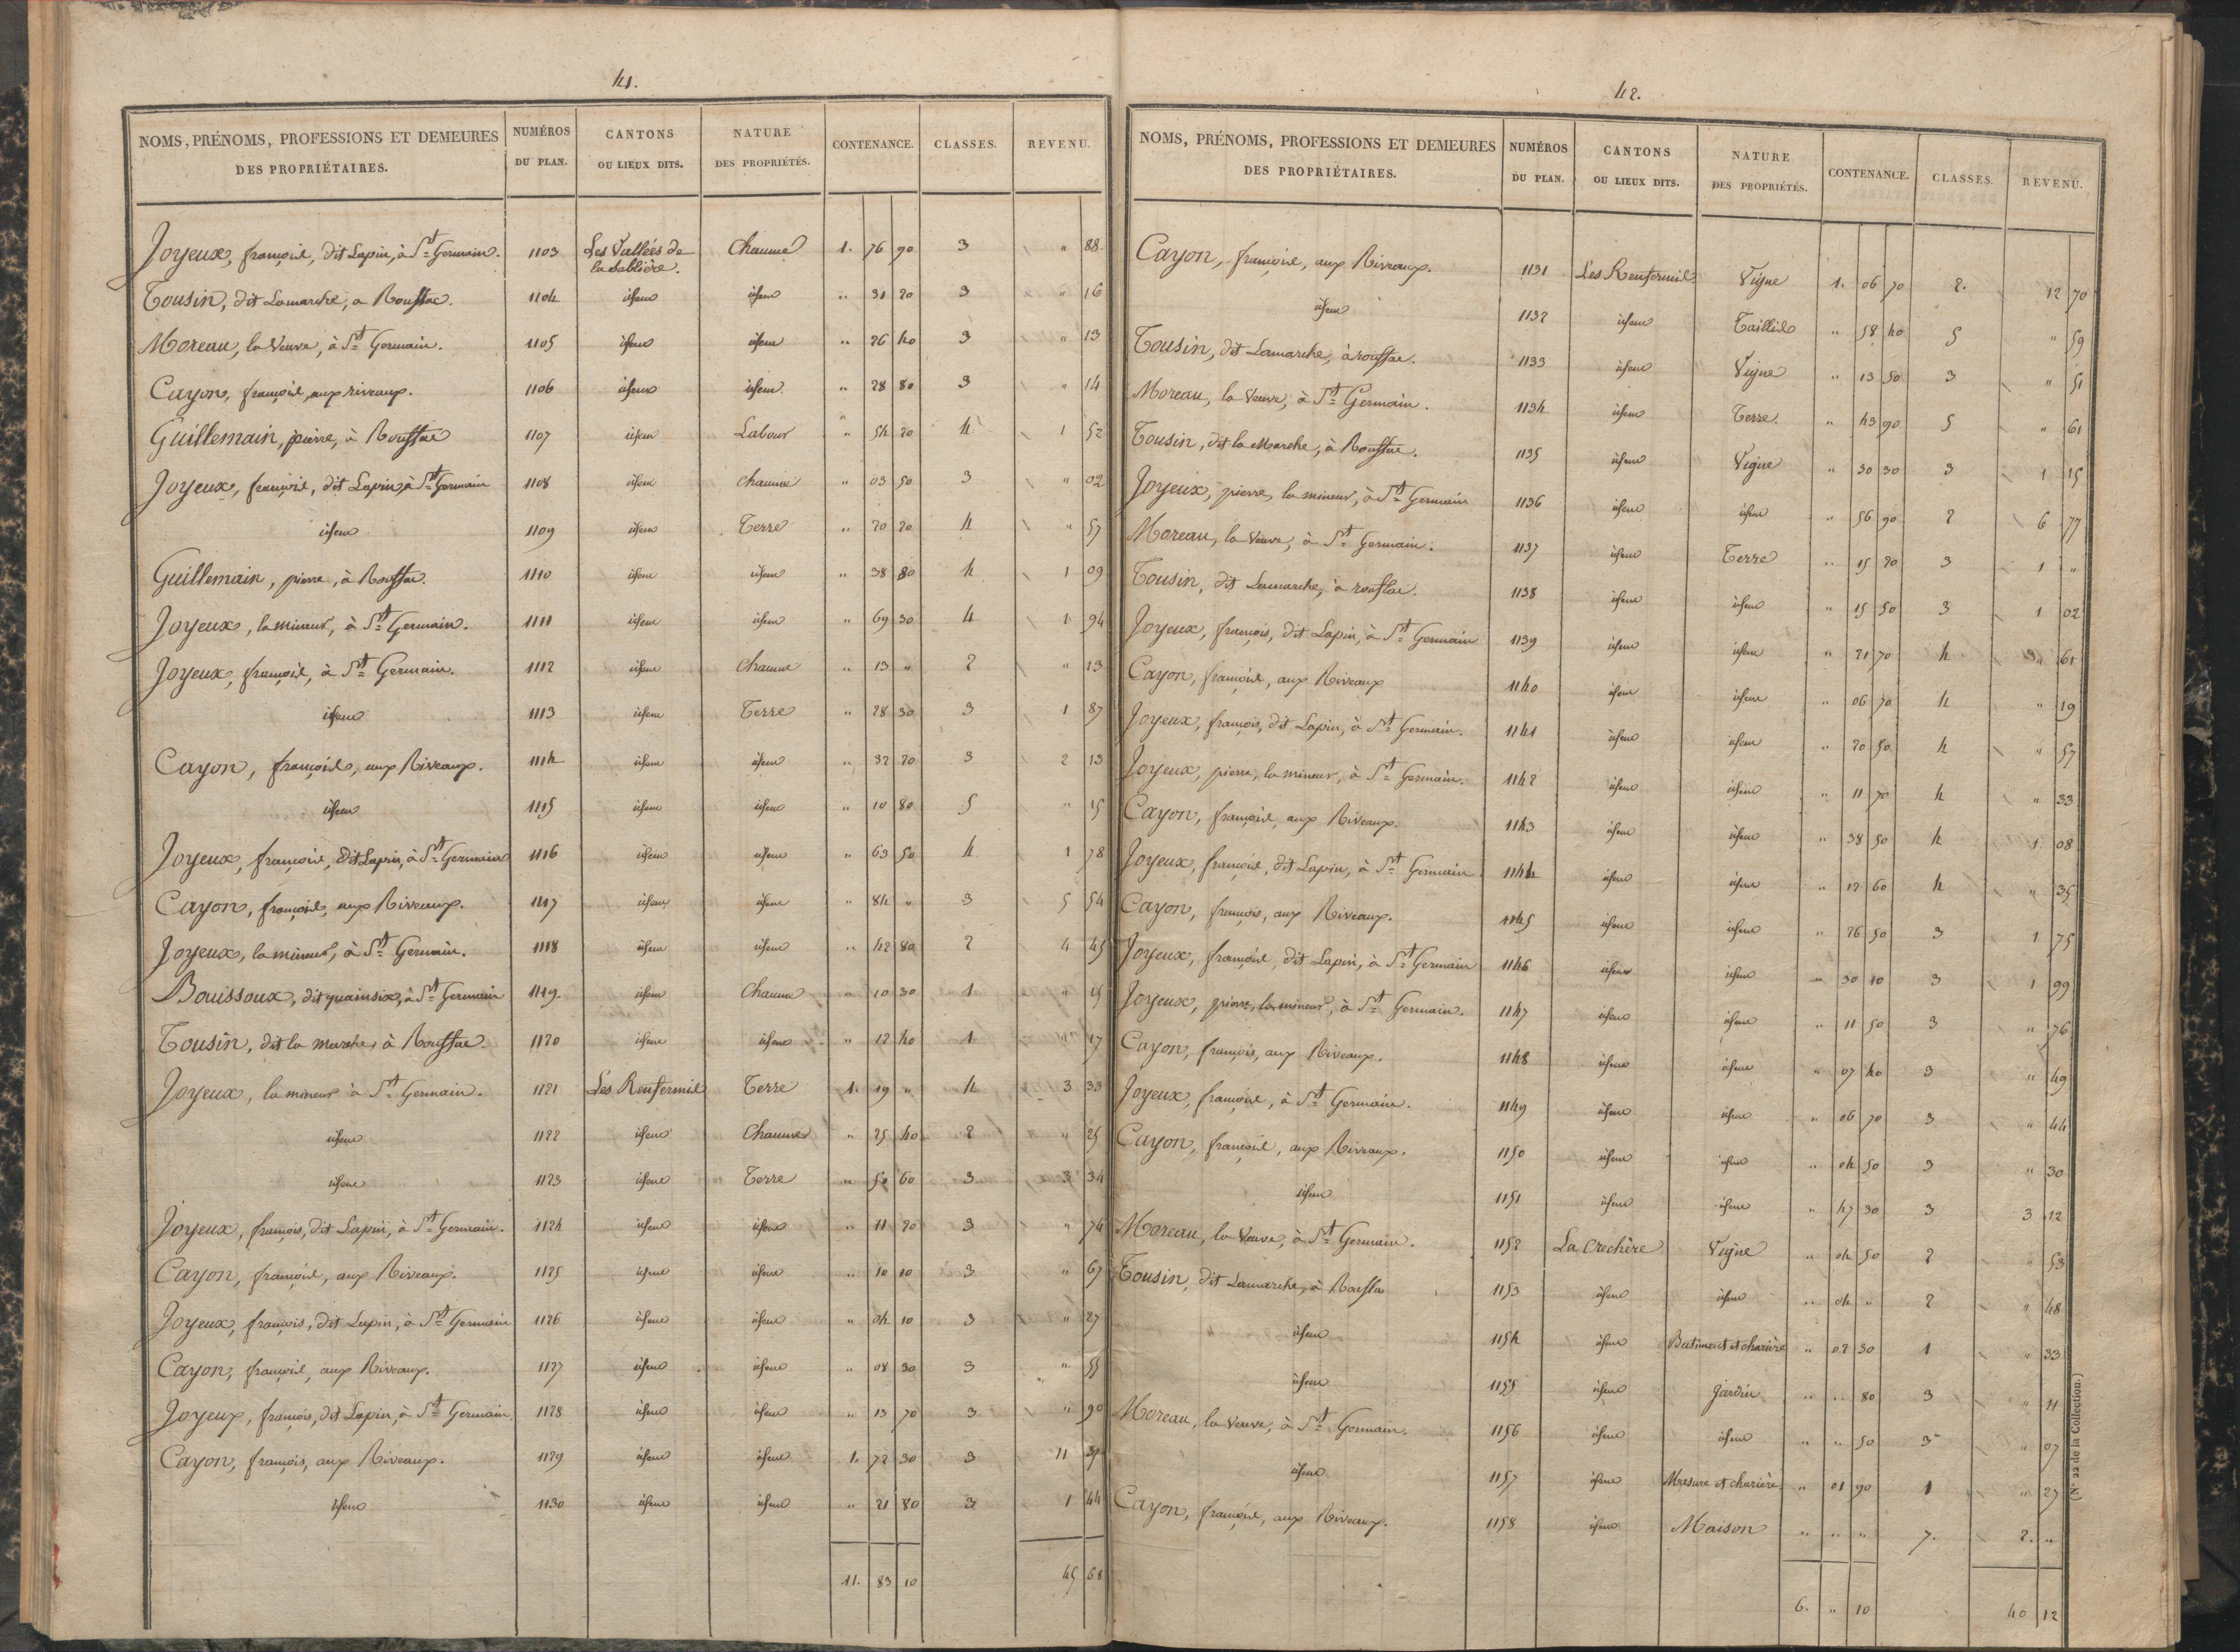 41.
NOMS, PRÉNOMS, PROFESSIONS ET DEMEURES DES PROPRIÉTAIRES. NUMÉROS DU PLAN. CANTONS OU LIEUX DITS. NATURE DES PROPRIÉTÉS. CONTENANCE. CLASSES. REVENU.
Joyeux, françois, dit Lapin, à St Germain. 1103 Les Vallées de la Sablière. Chaume 1. 76 90 3 " 88
Tousin, dit Lamarche, a Roussac. 1104 idem idem " 31 20 3 " 16
Moreau, la Veuve, à St Germain. 1105 idem idem " 26 40 3 " 13
Cayon, françois, aux riveaux. 1106 idem idem " 28 80 3 " 14
Guillemain, pierre, à Roussac 1107 idem Labour " 54 20 4 1 52
Joyeux, françois, dit Lapin, à St Germain 1108 idem chaume " 03 50 3 " 02
idem 1109 idem Terre " 20 20 4 " 57
Guillemain, pierre, à Roussac. 1110 idem idem " 38 80 4 1 09
Joyeux, la mineur, à St Germain. 1111 idem idem " 69 30 4 1 94
Joyeux, françois, à St Germain. 1112 idem chaume " 13 " 2 " 13
idem 1113 idem Terre " 28 30 3 1 87
Cayon, françois, aux Riveaux. 1114 idem idem " 32 20 3 2 13
idem 1115 idem idem " 10 80 5 " 15
Joyeux, françois, dit Lapin, à St Germain 1116 idem idem " 63 50 4 1 78
Cayon, françois, aux Riveaux. 1117 idem idem " 84 " 3 5 54
Joyeux, la mineur, à St Germain. 1118 idem idem " 42 80 2 4 45
Bouissoux, dit quainsix, à St Germain 1119. idem Chaume " 10 30 1 " 15
Tousin, dit la marche, à Roussac. 1120 idem idem " 12 40 1 " 17
Joyeux, la mineur à St Germain. 1121 Les Renfermis Terre 1. 19 " 4 3 33
idem 1122 idem Chaume " 25 40 2 " 25
idem 1123 idem Terre " 50 60 3 3 34
Joyeux, françois, dit Lapin, à St Germain. 1124 idem idem " 11 20 3 " 74
Cayon, françois, aux Riveaux. 1125 idem idem " 10 10 3 " 67
Joyeux, françois, dit Lapin, à St Germain 1126 idem idem " 04 10 3 " 27
Cayon, françois, aux Riveaux. 1127 idem idem " 08 30 3 " 55
Joyeux, françois, dit Lapin, à St Germain. 1128 idem idem " 13 70 3 " 90
Cayon, françois, aux Riveaux. 1129 idem idem 1. 72 30 3 11
idem 1130 idem idem " 21 80 3 1 44
11. 83 10 45 68
42.
NOMS, PRÉNOMS, PROFESSIONS ET DEMEURES DES PROPRIÉTAIRES. NUMÉROS DU PLAN. CANTONS OU LIEUX DITS. NATURE DES PROPRIÉTÉS. CONTENANCE. CLASSES. REVENU.
Cayon, françois, aux Riveaux. 1131 Les Renfermis Vigne 1. 06 70 2. 12 70
idem 1132 idem Taillis " 58 40 5 " 59
Tousin, dit Lamarche, à roussac. 1133 idem Vigne " 13 50 3 " 51
Moreau, la Veuve, à St Germain. 1134 idem Terre. " 43 90 5 " 61
Tousin, dit la Marche, à Roussac. 1135 idem Vigne " 30 30 3 1 15
Joyeux, pierre, la mineur, à St Germain 1136 idem idem " 56 90 2 6 77
Moreau, la Veuve, à St Germain. 1137 idem Terre " 15 20 3 1 "
Tousin, dit Lamarche, à roussac. 1138 idem idem " 15 50 3 1 02
Joyeux, françois, dit Lapin, à St Germain 1139 idem idem " 21 70 4 " 61
Cayon, françois, aux Riveaux 1140 idem idem " 06 70 4 " 19
Joyeux, françois, dit Lapin, à St Germain. 1141 idem idem " 20 50 4 " 57
Joyeux, pierre, la mineur, à St Germain. 1142 idem idem " 11 70 4 " 33
Cayon, françois, aux Riveaux. 1143 idem idem " 38 50 4 1 08
Joyeux, françois, dit Lapin, à St Germain 1144 idem idem " 12 60 4 " 35
Cayon, françois, aux Riveaux. 1145 idem idem " 26 50 3 1 75
Joyeux, françois, dit Lapin, à St Germain 1146 idem idem " 30 10 3 1 99
Joyeux, pierre, la mineur, à St Germain. 1147 idem idem " 11 50 3 " 76
Cayon, françois, aux Riveaux. 1148 idem idem " 07 40 3 " 49
Joyeux, françois, à St Germain. 1149 idem idem " 06 70 3 " 44
Cayon, françois, aux Riveaux. 1150 idem idem " 04 50 3 " 30
idem 1151 idem idem " 47 30 3 3 12
Moreau, la Veuve, à St Germain. 1152 La Crechère Vigne " 04 50 2 " 53
Tousin, dit Lamarche, à Roussac 1153 idem idem " 04 " 2 " 48
idem 1154 idem Batiment et charière " 02 30 1 " 33
idem 1155 idem Jardin " " 80 3 " 11
Moreau, la Veuve, à St Germain. 1156 idem idem " " 50 3 " 07
idem 1157 idem Masure et charière. " 01 90 1 " 27
Cayon, françois, aux Riveaux. 1158 idem Maison " " " 7. 2. "
6. " 10 40 12
(N° 22 de la Collection.)